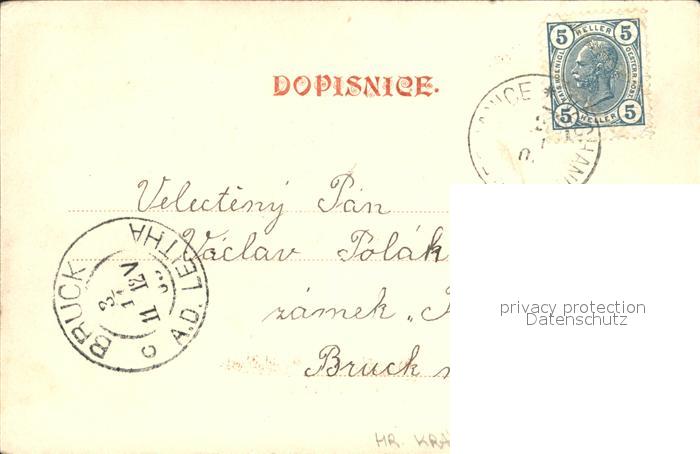 DOPISNICE.
5 HELLER 5
KAIS. KOENIGL. OESTERR. POST
5 HELLER 5
Velectěný Pán
Václav Polák
zámek „
Bruck
BRUCK A.D. LEITHA
3
11 12V
c
privacy protection
Datenschutz
HR. KRÁ